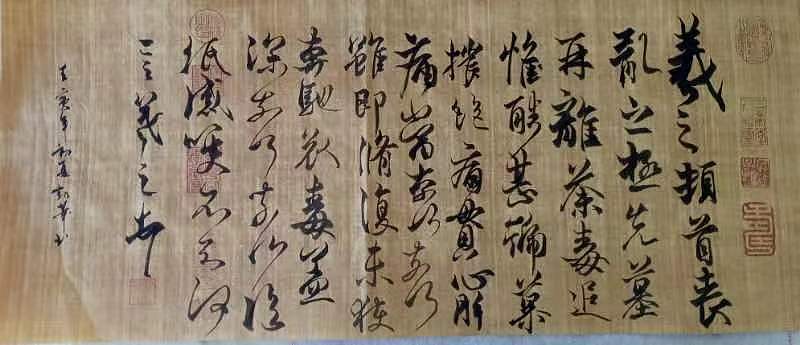 羲之頓首喪
亂之極先墓
再離荼毒追
惟酷甚號慕
摧絕痛貫心肝
痛當奈何奈何
雖即脩復未獲
奔馳哀毒益
深奈何奈何臨
紙感哽不知何
言羲之頓首